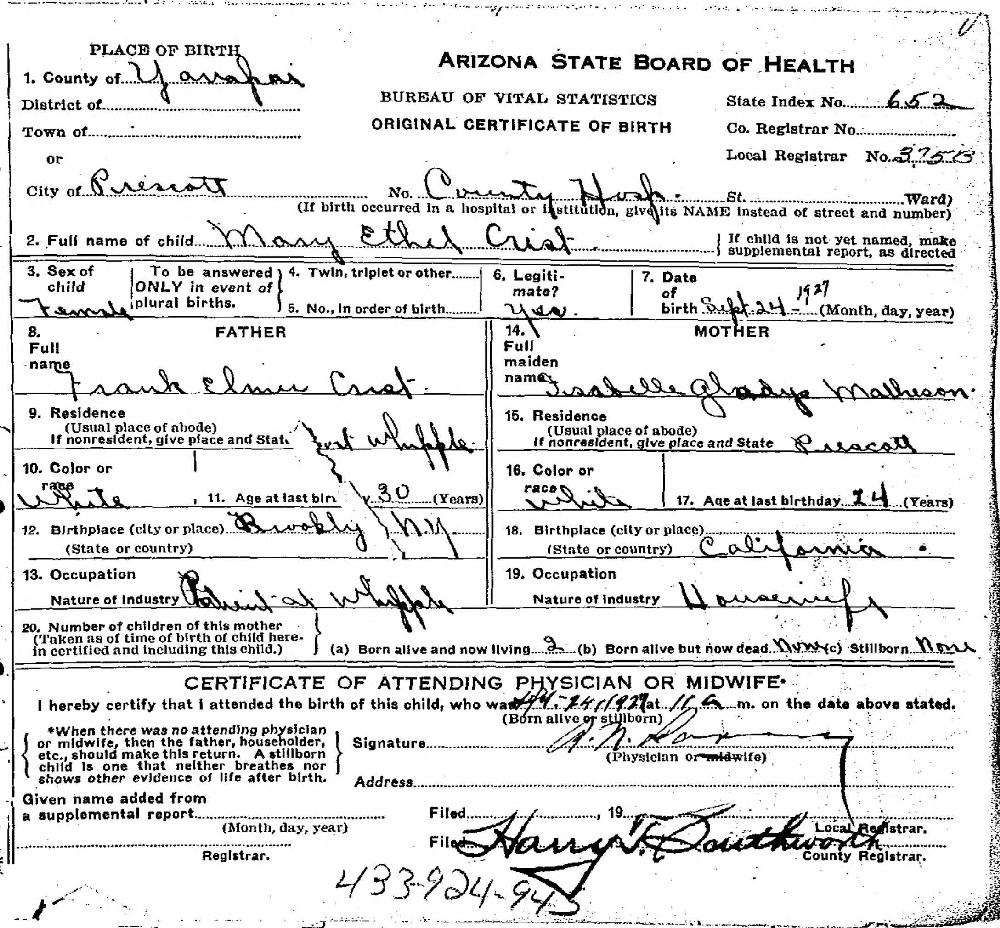 PLACE OF BIRTH
ARIZONA STATE BOARD OF HEALTH
1. County of Yavapai
BUREAU OF VITAL STATISTICS
State Index No. 652
District of
ORIGINAL CERTIFICATE OF BIRTH
Co. Registrar No.
Town of
or
Local Registrar No. 375B
City of Prescott No. County Hosp. St. Ward)
(If birth occurred in a hospital or institution, give its NAME instead of street and number)
2. Full name of child Mary Ethel Crist
If child is not yet named, make
supplemental report, as directed
3. Sex of
child
Female
To be answered
ONLY in event of
plural births.
4. Twin, triplet or other
5. No., in order of birth
6. Legiti-
mate?
Yes.
7. Date
of
birth Sept. 24 - 1927 (Month, day, year)
8. FATHER
Full
name
Frank Elmer Crist.
9. Residence
(Usual place of abode)
If nonresident, give place and Stat Fort Whipple
10. Color or
race
White
11. Age at last bir y 30 (Years)
12. Birthplace (city or place) Brookly N.Y.
(State or country)
13. Occupation
Nature of Industry Patient at Whipple
14. MOTHER
Full
maiden
name Isabelle Gladys Matheson.
15. Residence
(Usual place of abode)
If nonresident, give place and State Prescott
16. Color or
race
White
17. Age at last birthday 24 (Years)
18. Birthplace (city or place)
(State or country) California
19. Occupation
Nature of industry Housewife
20. Number of children of this mother
(Taken as of time of birth of child here-
in certified and including this child.)
(a) Born alive and now living 2 (b) Born alive but now dead None (c) Stillborn None
CERTIFICATE OF ATTENDING PHYSICIAN OR MIDWIFE*
I hereby certify that I attended the birth of this child, who was 24, 1927 at 11 a m. on the date above stated.
(Born alive or stillborn)
*When there was no attending physician
or midwife, then the father, householder,
etc., should make this return. A stillborn
child is one that neither breathes nor
shows other evidence of life after birth.
Signature
(Physician or midwife)
Address
Given name added from
a supplemental report
(Month, day, year)
Registrar.
Filed , 19
Local Registrar.
Filed Harry T. Southworth
County Registrar.
433-924-945